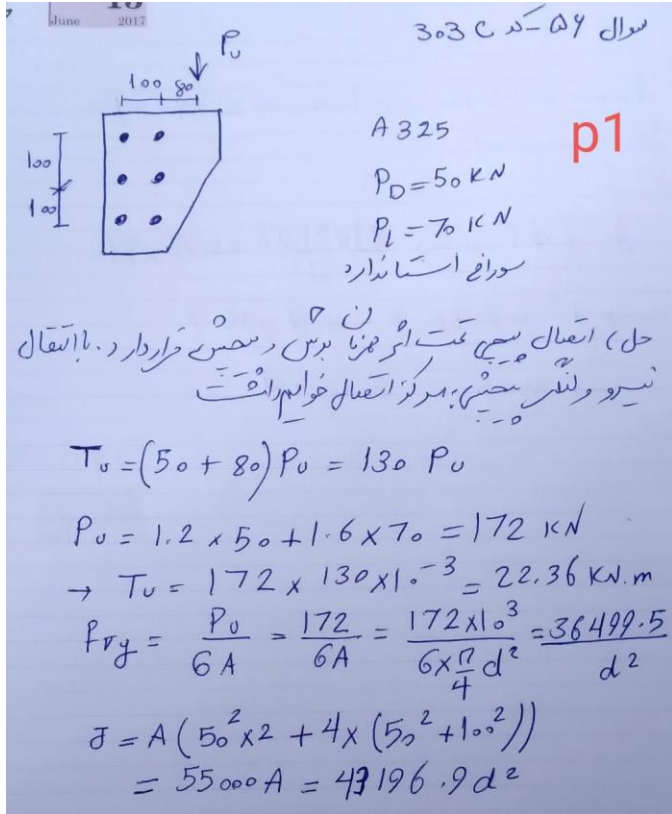 June 2017
سوال ۵۶ - کد 303 C
Pᵤ
100 80
100
100
A 325
p1
P_D = 50 KN
P_L = 70 KN
سوراخ استاندارد
حل) اتصال پیچی تحت اثر همزمان برش و پیچش قرار دارد. با انتقال
نیرو و لنگر پیچشی به مرکز اتصال خواهیم داشت
Tᵤ = (50 + 80) Pᵤ = 130 Pᵤ
Pᵤ = 1.2 × 50 + 1.6 × 70 = 172 KN
→ Tᵤ = 172 × 130 × 10⁻³ = 22.36 KN.m
f_vy = Pᵤ / 6A = 172 / 6A = 172×10³ / (6×π/4 d²) = 36499.5 / d²
J = A (50² × 2 + 4 × (50² + 100²))
= 55000 A = 43196.9 d²